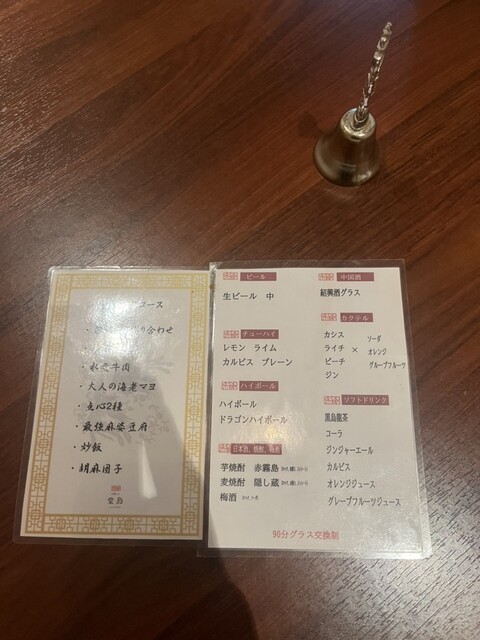 コース
り合わせ
水煮牛肉
・大人の海老マヨ
・点心2種
・最強麻婆豆腐
・炒飯
・胡麻団子
堂島
ビール
生ビール 中
チューハイ
レモン ライム
カルピス プレーン
ハイボール
ハイボール
ドラゴンハイボール
日本酒、焼酎、梅酒
芋焼酎 赤霧島
麦焼酎 隠し蔵
梅酒
中国酒
紹興酒グラス
カクテル
カシス
ライチ × 
ピーチ
ジン
ソーダ
オレンジ
グレープフルーツ
ソフトドリンク
黒烏龍茶
コーラ
ジンジャーエール
カルピス
オレンジジュース
グレープフルーツジュース
90分グラス交換制